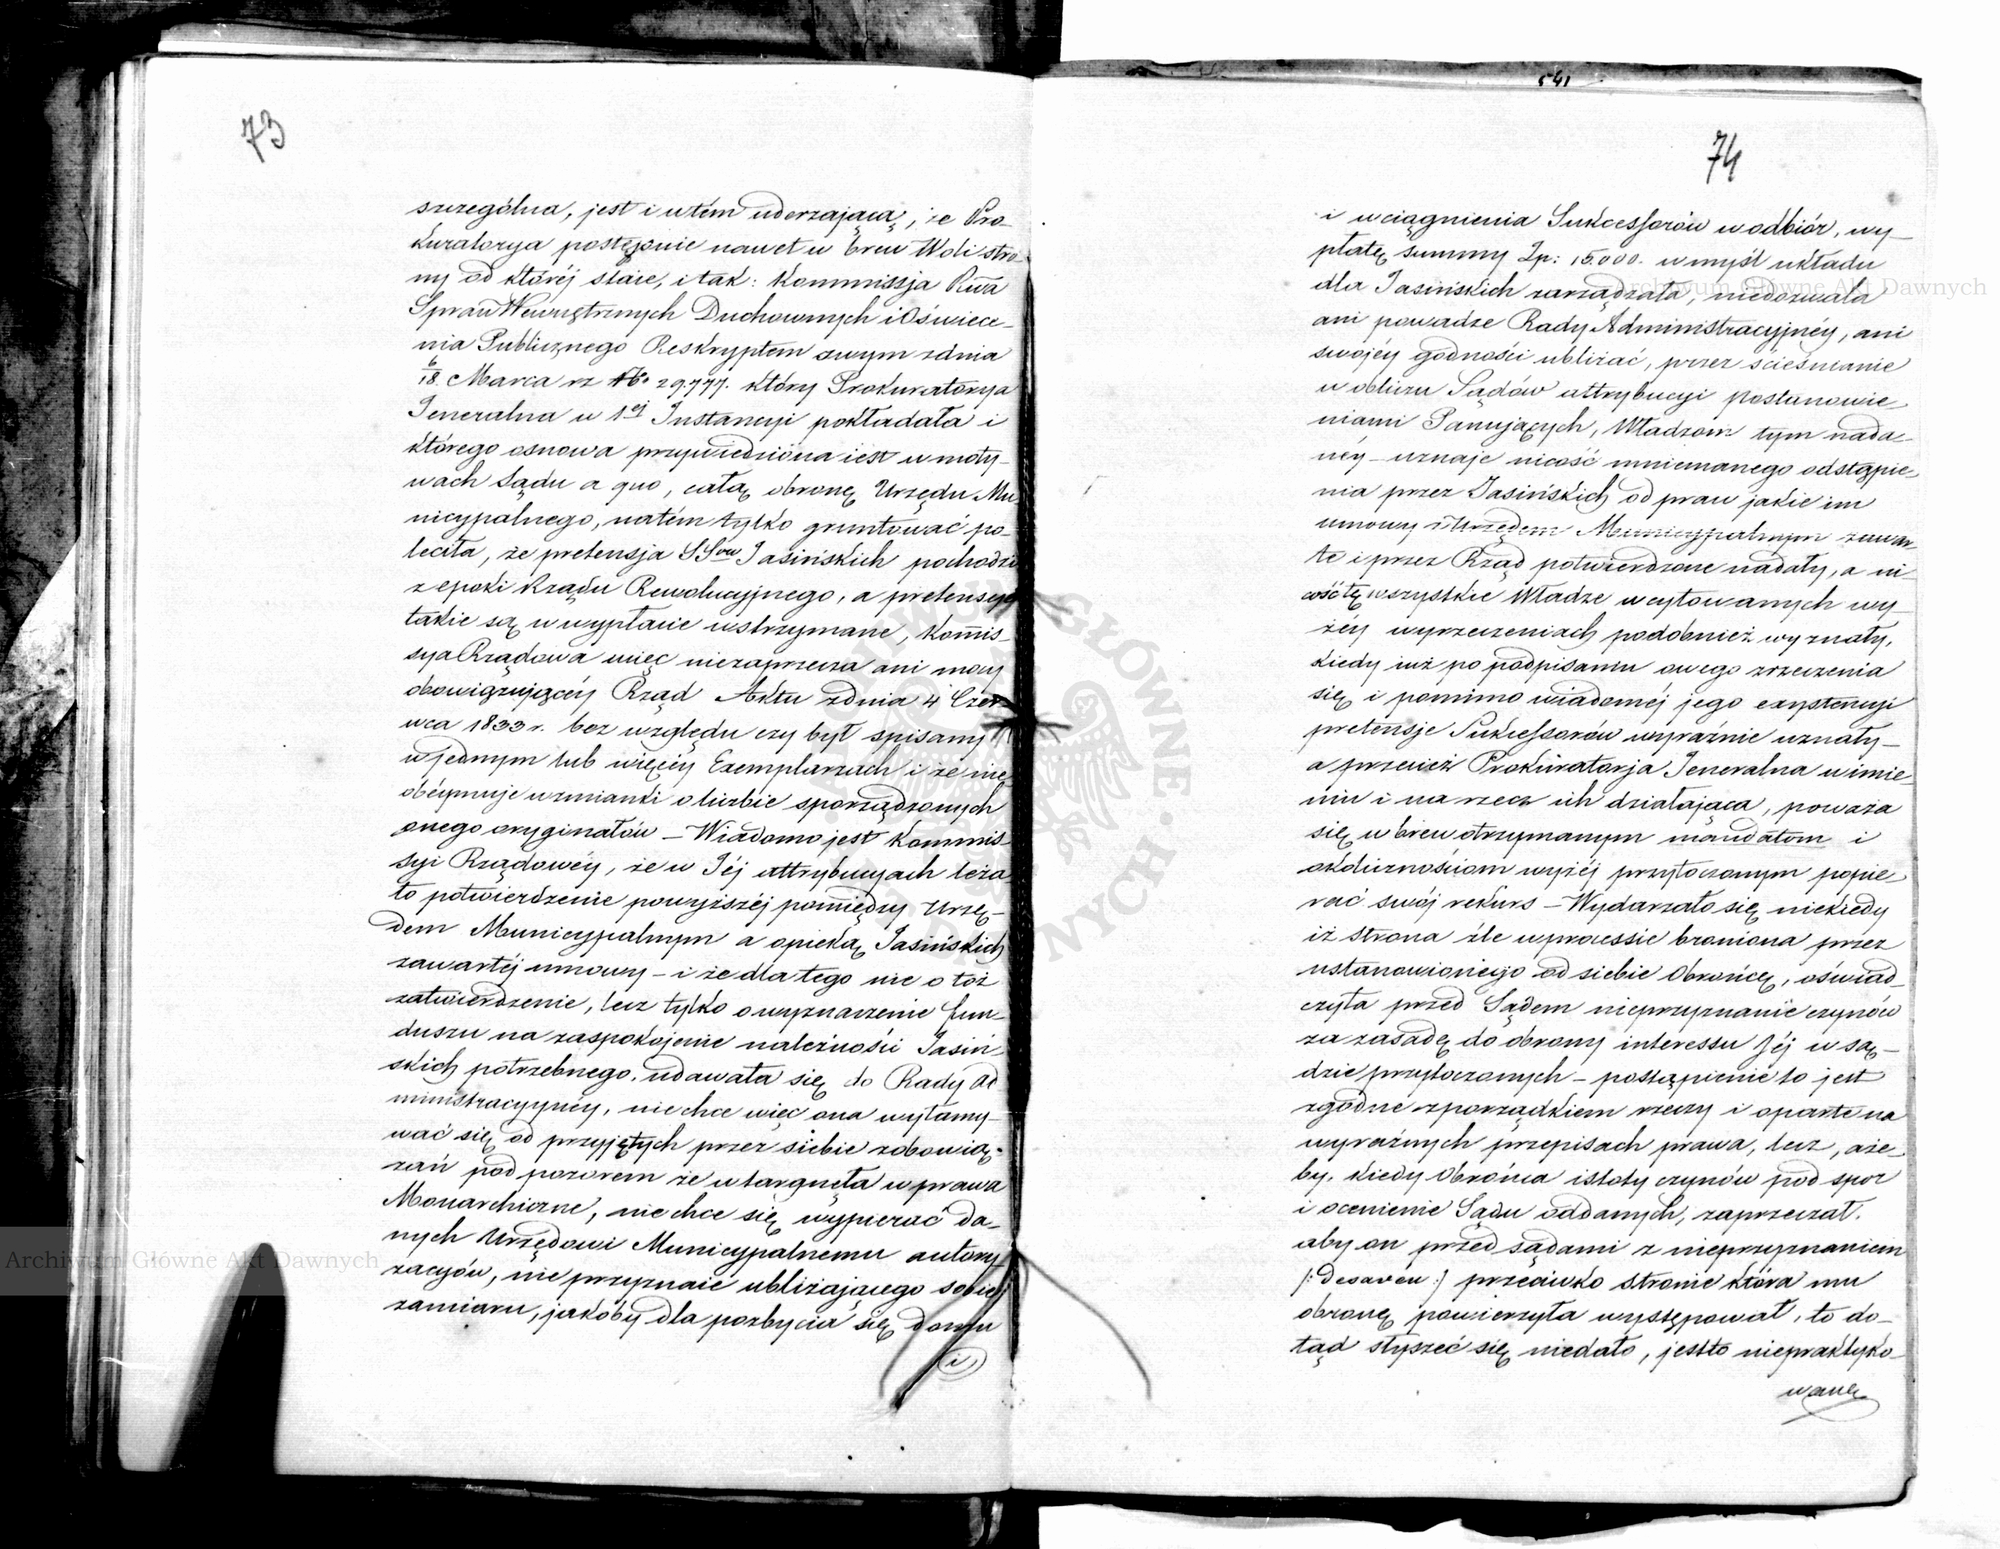 73
szczególna, jest i w tém uderzającą, że Pro-
kuratorya postępuie nawet w brew Woli stro-
ny od któréj staie, i tak: Kommissja Rwa
Spraw Wewnętrznych Duchownych i Oświece-
nia Publicznego Reskryptem swym zdnia
6/18. Marca rz No 29,777. który Prokuratorya
Jeneralna w 1ej Instancyi pokładała i
którego osnowa przywiedziona iest w moty-
wach Sądu a quo, całą obronę Urzędu Mu
nicypalnego, natém tylko gruntować po-
leciła, że pretensja SSow Jasińskich pochodzi
z epoki Rządu Rewolucyjnego, a pretensye
takie są w wypłacie wstrzymane, Kommis-
sya Rządowa więc niezaprzecza ani mocy
obowiązującéy Rząd Aktu zdnia 4 Czer-
wca 1833 r. bez względu czy był spisany
w jednym lub więcéy Exemplarzach i że nie
obéymuje wzmianki o liczbie sporządzonych
onego oryginałów – Wiadomo jest Kommis-
syi Rządowéy, że w Jéj attrybucyach leża-
ło potwierdzenie powyższéj pomiędzy Urzę-
dem Municypalnym a opieką Jasińskich
zawartéj umowy – i że dla tego nie o toż
zatwierdzenie, lecz tylko o wyznaczenie fun-
duszu na zaspokojenie należności Jasiń-
skich potrzebnego, udawała się do Rady Ad
ministracyynéy, nie chce więc ona wyłamy-
wać się od przyjętych przez siebie zobowią-
zań pod pozorem że utargnęła w prawa
Monarchiczne, nie chce się wypierać da-
nych Urzędowi Municypalnemu autory
zacyów, nie przyznaie ubliżającego sobie
zamiaru, jakóby dla pozbycia się domu
i
541
74
i wciągnienia Sukcessorów w odbiór, wy-
płatę summy Zp: 15,000. w myśl układu
dla Jasińskich zarządzała, niedozwala
ani powadze Rady Administracyjnéy, ani
swojéy godności ubliżać, przez ścieśnianie
w obliczu Sądów attrybucyi postanowie-
niami Panujących, Władzom tym nada-
néy – uznaje nicość mniemanego odstąpie-
nia przez Jasińskich od praw jakie im
umowy z Urzędem Municypalnym zawar-
te i przez Rząd potwierdzone nadały, a ni-
cość tę wszystkie Władze w cytowanych wy-
żéy wyrzeczeniach podobnież wyznały,
kiedy iuż po podpisaniu owego zrzeczenia
się i pomimo wiadoméj jego exystencyi
pretensje Sukcessorów wyraźnie uznały –
a przecież Prokuratorja Jeneralna w imie-
niu i na rzecz ich działająca, poważa
się w brew otrzymanym mandatom i
okolicznościom wyżéj przytoczonym popie-
rać swój rekurs – Wydarzało się niekiedy
iż strona źle w processie broniona przez
ustanowionego od siebie Obrońcę, oświad-
czyła przed Sądem nieprzyznanie czynów
za zasadę do obrony interessu Jéj w są-
dzie przytoczonych – postąpienie to jest
zgodne z porządkiem rzeczy i oparte na
wyraźnych przepisach prawa, lecz, aże-
by, kiedy Obrońca istoty czynów pod spor
i ocenienie Sądu oddanych, zaprzeczał.
aby on przed sądami z nieprzyznaniem
/: Desaveu :/ przeciwko stronie która mu
obronę powierzyła występował, to do-
tąd słyszeć się niedało, jestto niepraktyko-
wane